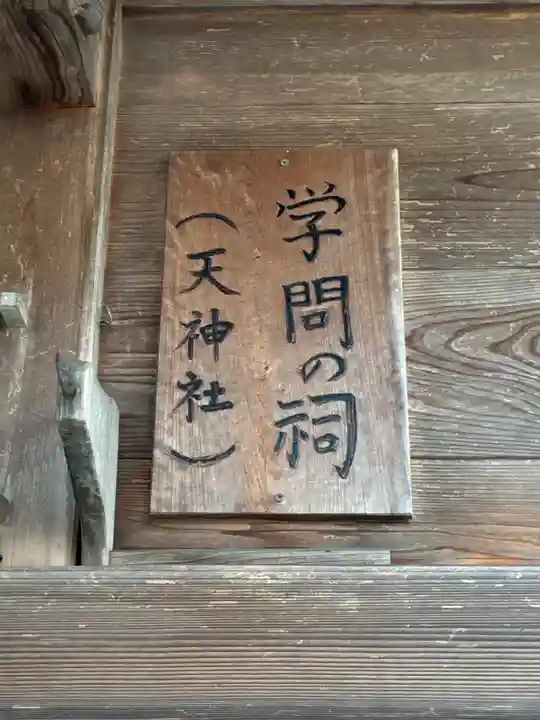 学問の祠
(天神社)